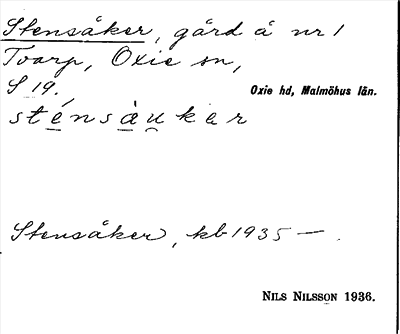 Stensåker, gård å nr 1
Tvarp, Oxie sn,
S 19.
Oxie hd, Malmöhus län.
sténsàu̯kɐr
Stensåker, kb 1935 — .
NILS NILSSON 1936.